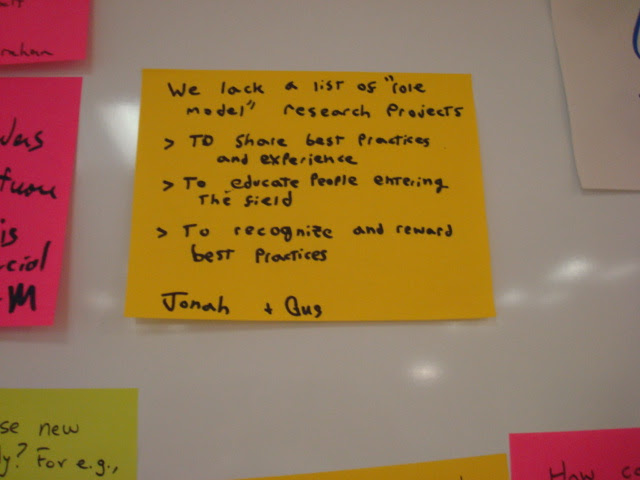 We lack a list of "role
model" research Projects
> TO share best Practices
and experience
> To educate People entering
The field
> To recognize and reward
best Practices
Jonah + Gus
is
M
se new
y? For e.g.,
How co